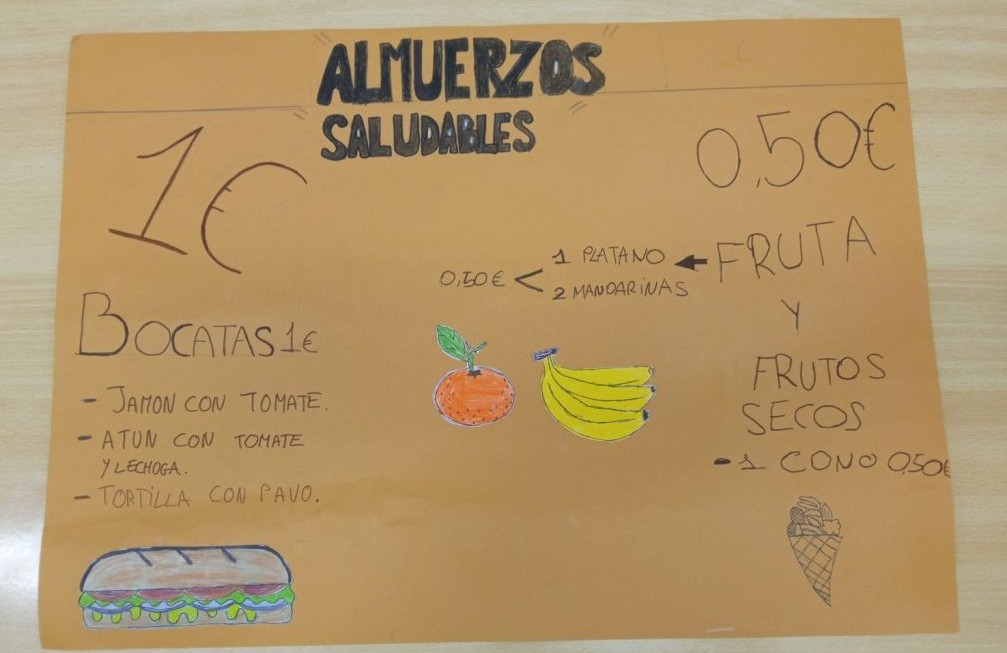 ALMUERZOS
SALUDABLES
1€
BOCATAS 1€
- JAMON CON TOMATE.
- ATUN CON TOMATE
Y LECHOGA.
- TORTILLA CON PAVO.
0,50€ <
1 PLATANO
2 MANDARINAS
0,50€
FRUTA
Y
FRUTOS
SECOS
- 1 CONO 0,50€